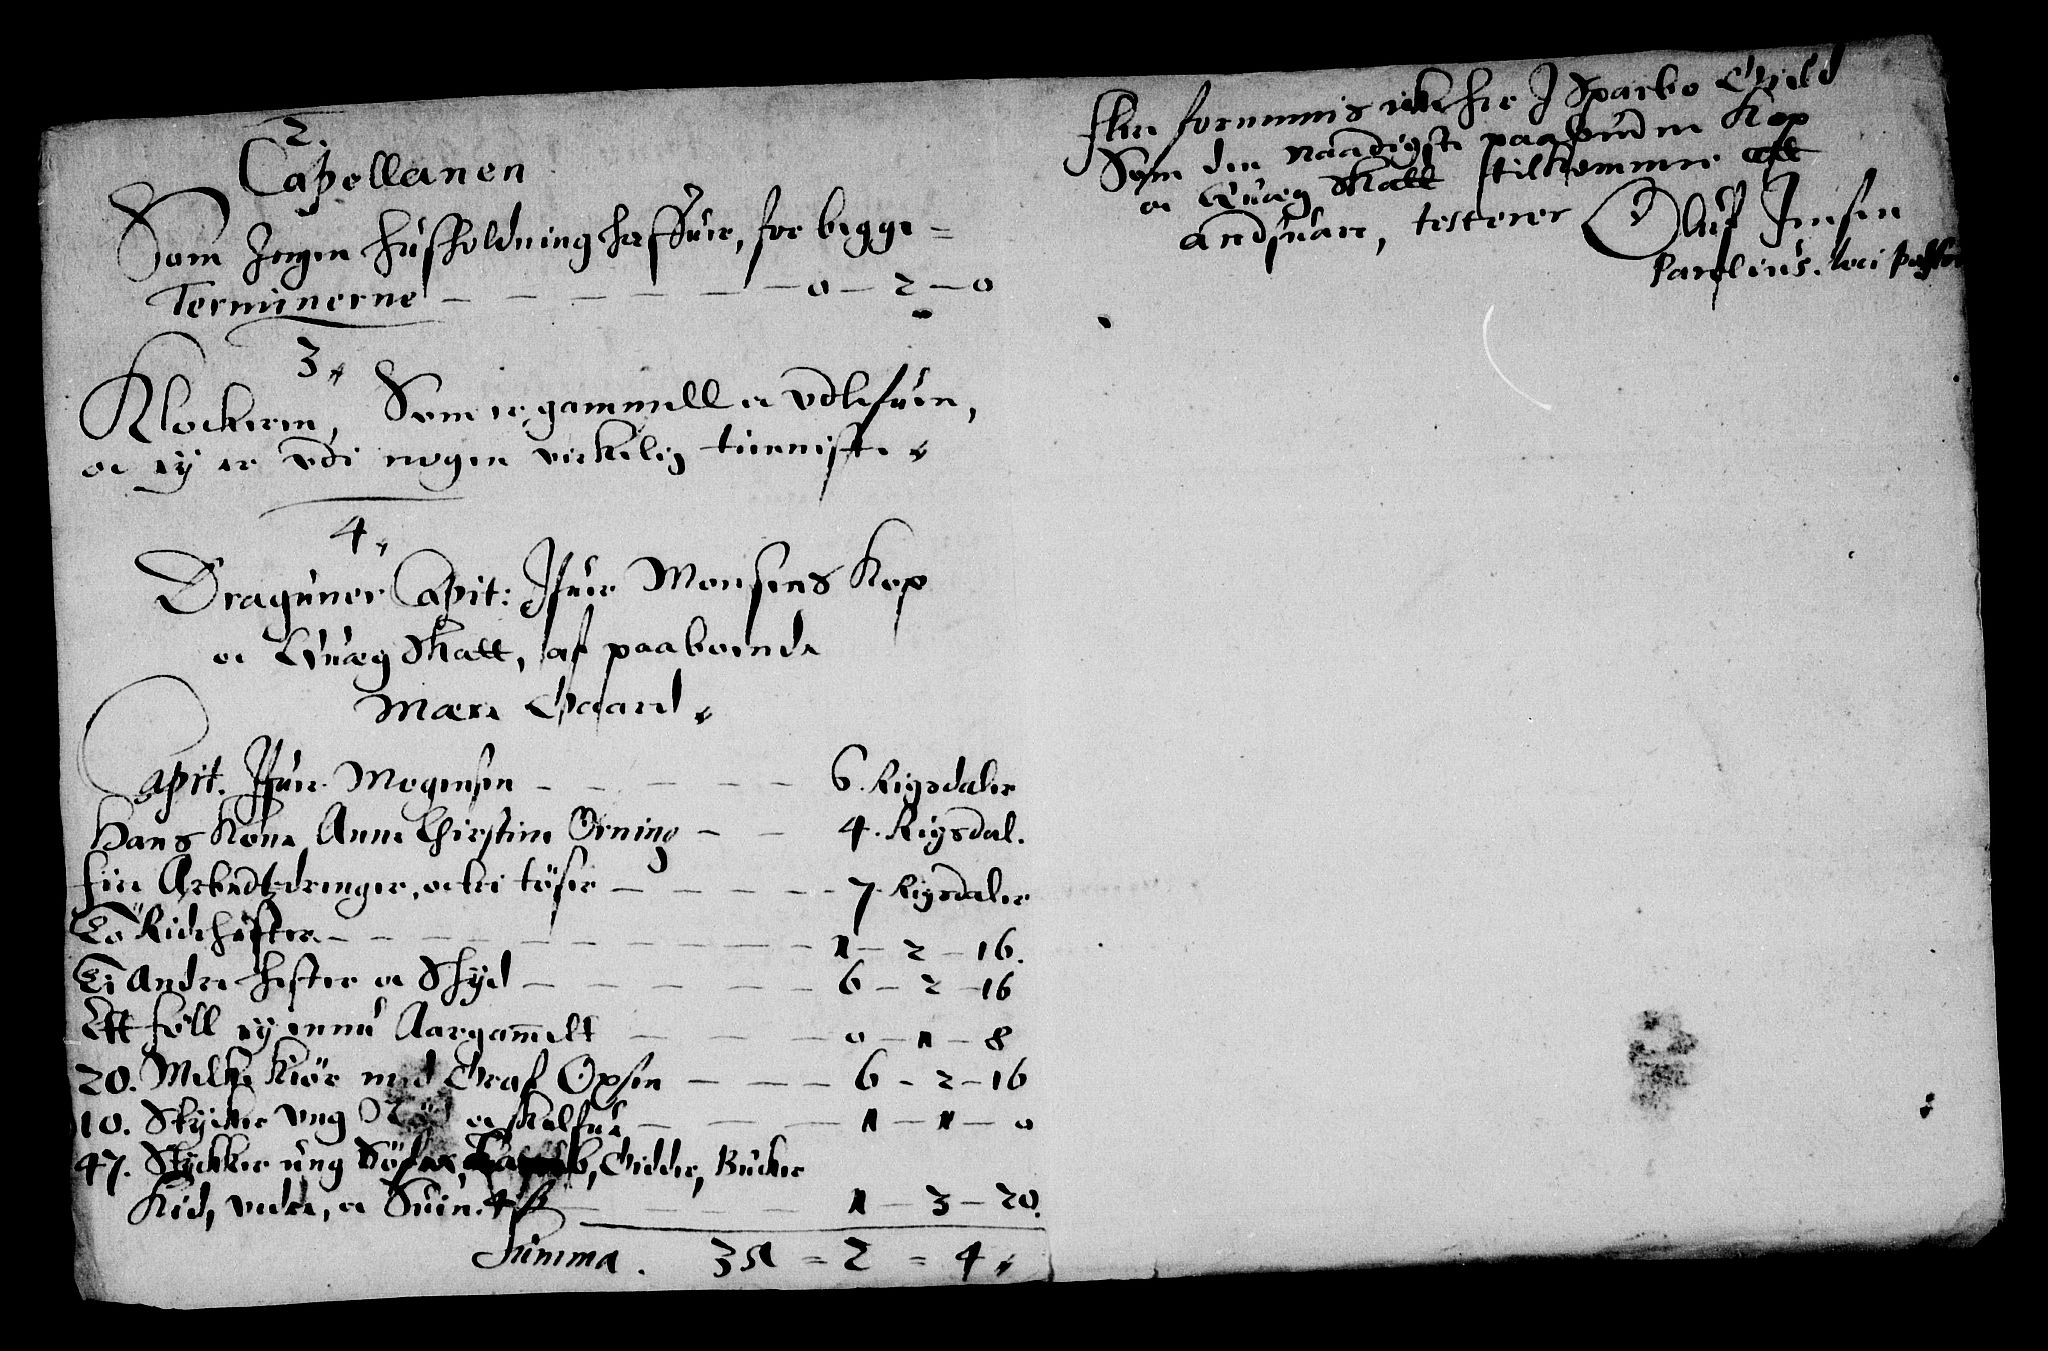 2.
Capellanen
Som Ingen husholdning haffuer, for begge =
Terminerne — — — — — — 0 — 2 — 0
3
Klockeren, Som er gammell oc vdlefuen,
oc ey er vdi nogen virkelig tienniste
4
Draguner Capit: Ifuer Monsens Kop
oc Quæg Skatt, af paaboende
Mære Gaard
Capit. Ifuer Mogensen — — — — — 6. Rigsdaler
Hans Kone Anne Chirstine Orning — — 4. Rigsdal.
Fire Arbedtzdrenger, oc tri töser — — — — 7 Rigsdaler
To Ridehester — — — — — — — — 1 — 2 — 16.
Ti Andre hester oc Skyd — — — — — 6 — 2 — 16
Ett föll ey ennu Aargammelt — — — 0 — 1 — 8
20. Melke Kiör med Graf Oxsen — — — 6 — 2 — 16
10. Stycker ung Nöd oc Kalfue — — — 1 — 1 — 0
47. Stykker ung Söfer, Lamb, Gidder, Bucker
Kid, vedre, oc Suin. 4 st — — — — 1 — 3 — 20.
Summa. 35 = 2 = 4
Flere fornimmis icke her I Sparbo Gield
Som den Naadigste paabuden Kop
oc Quæg Skatt tilkommer att
andsuare, testerer Oluf Jensen
Parelius. loci pastor